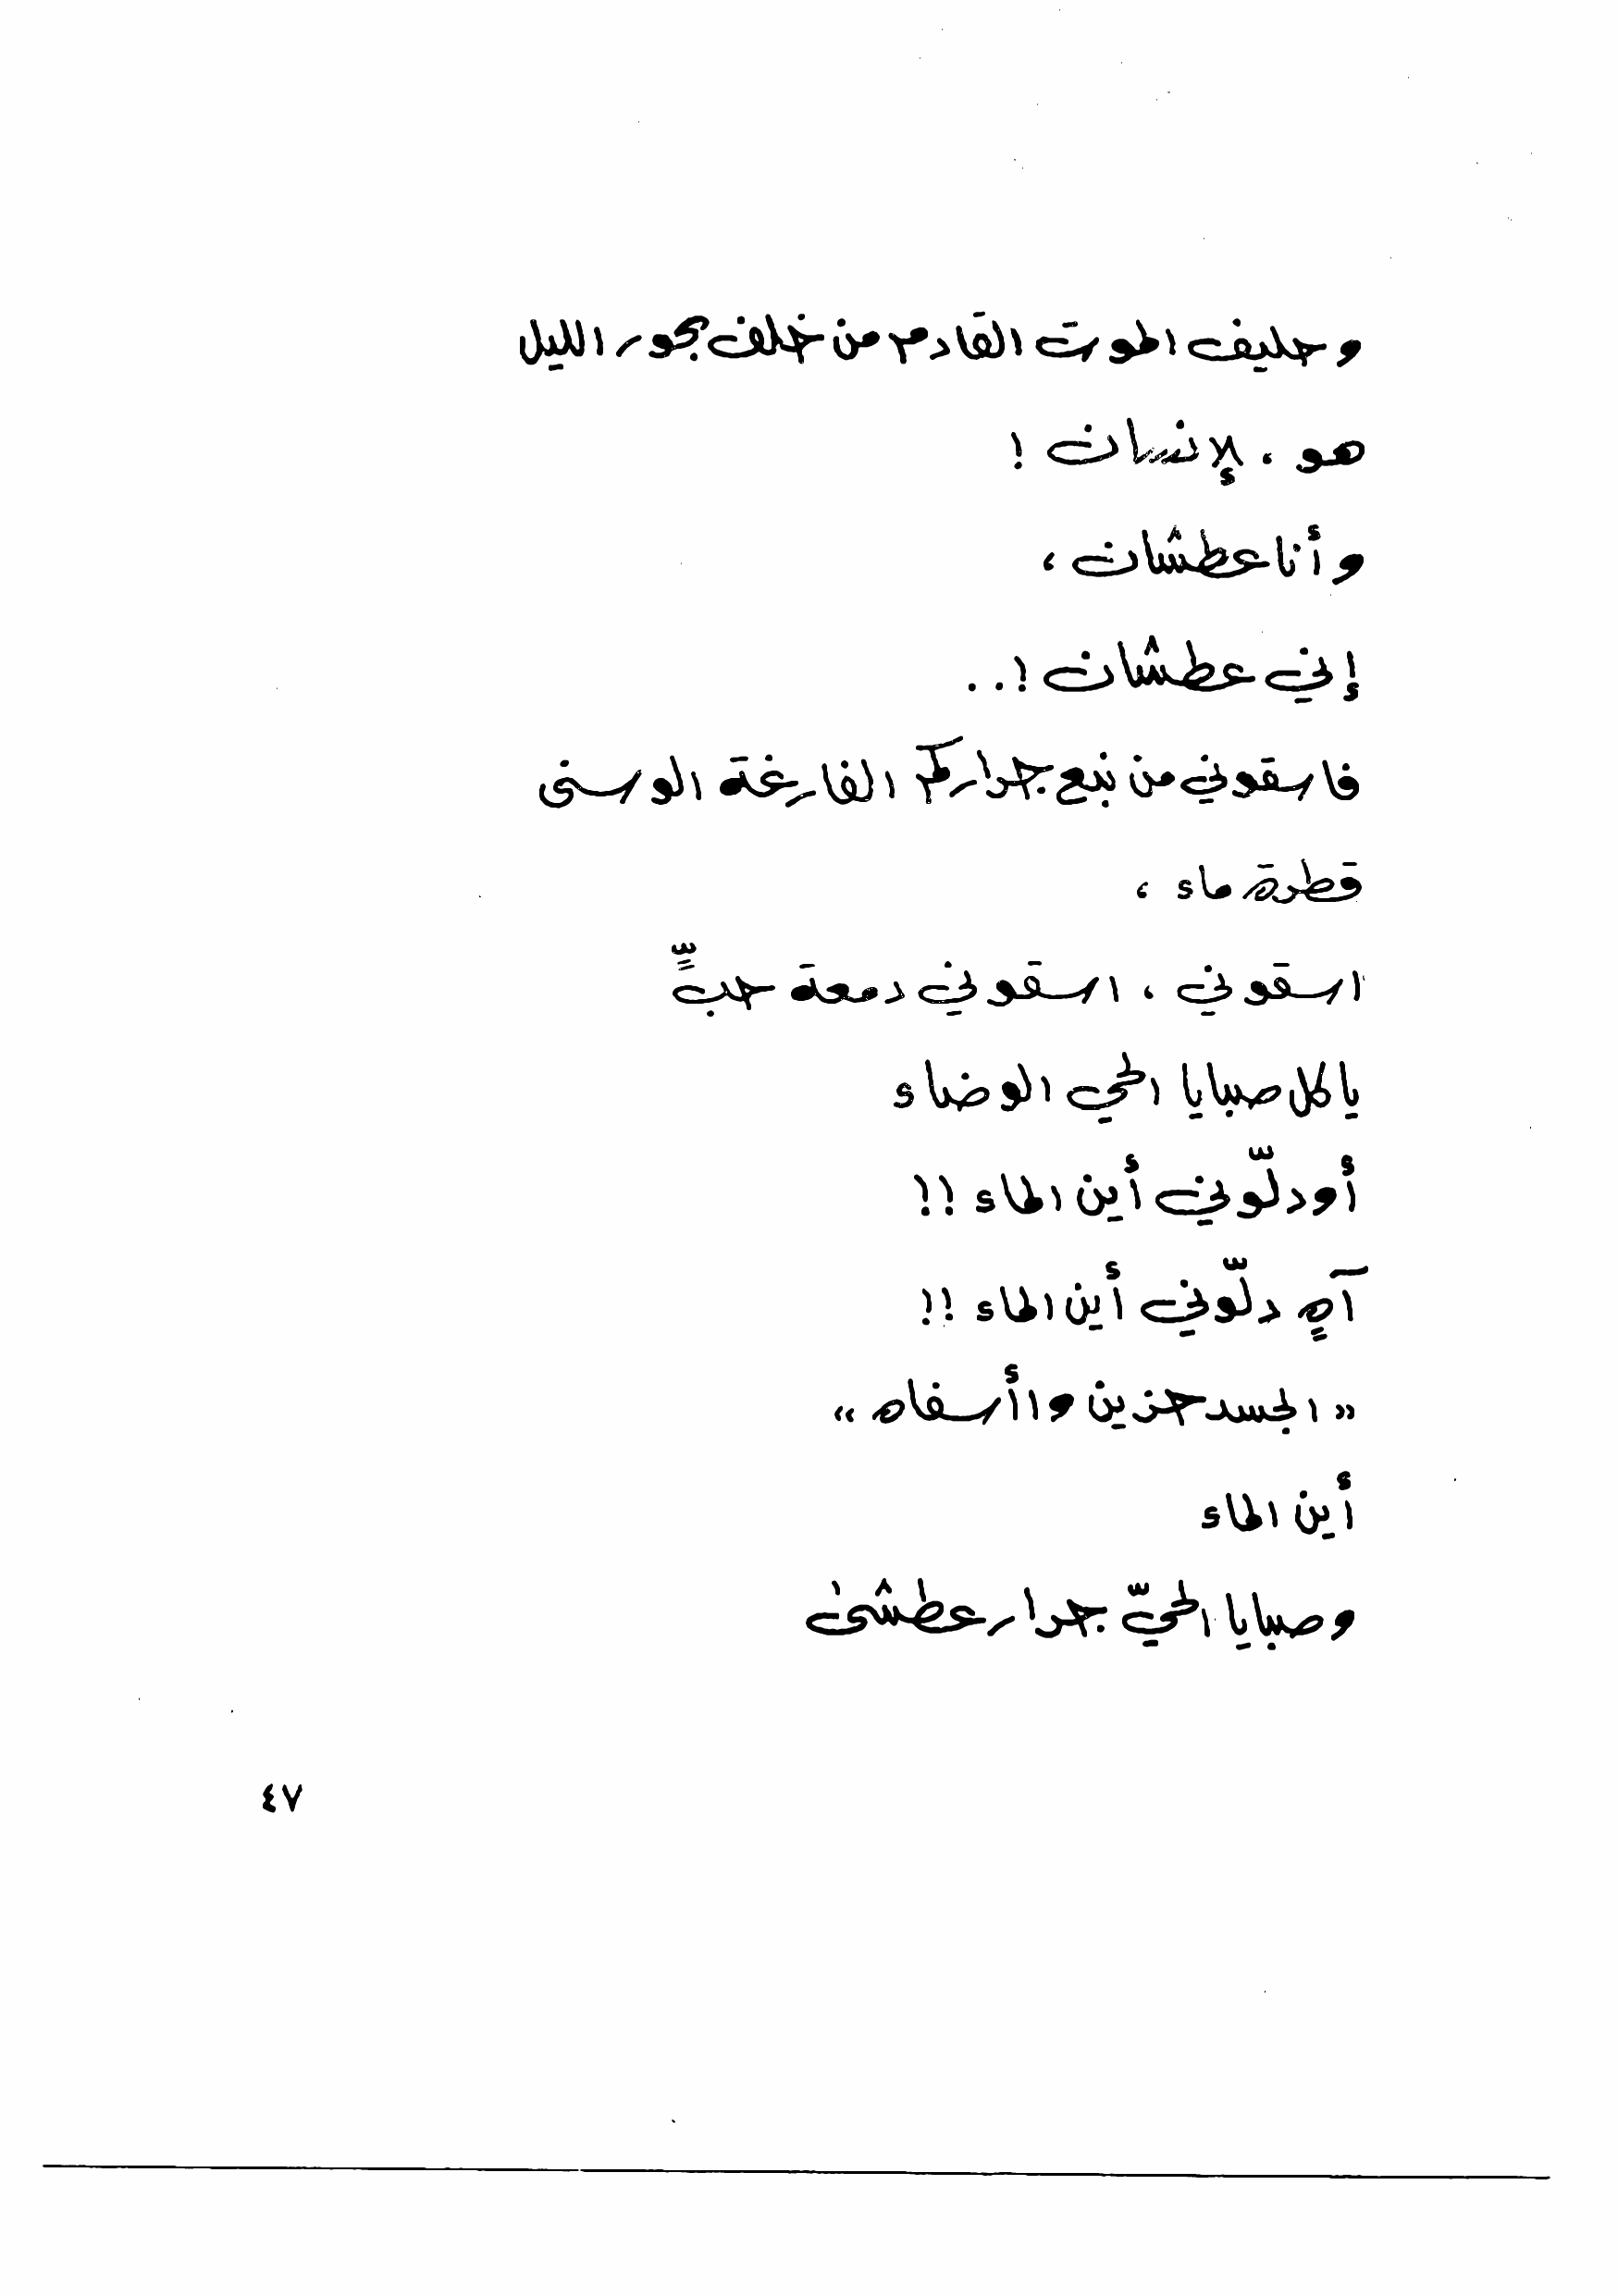 وحليف الموت القادم من خلف بحور الليل
هو ، لإنسان !
وأنا عطشان ،
إني عطشان !..
فاسقوني من نبع جراركم الفارغة الوسنى
قطرة ماء ،
اسقوني ، اسقوني دمعة حبٍّ
يا كل صبايا الحي الوضاء
أو دلّوني أين الماء !!
آهٍ دلّوني أين الماء !!
« الجسد حزين واأسفاه »
أين الماء
وصبايا الحيّ جرار عطشى
٤٧